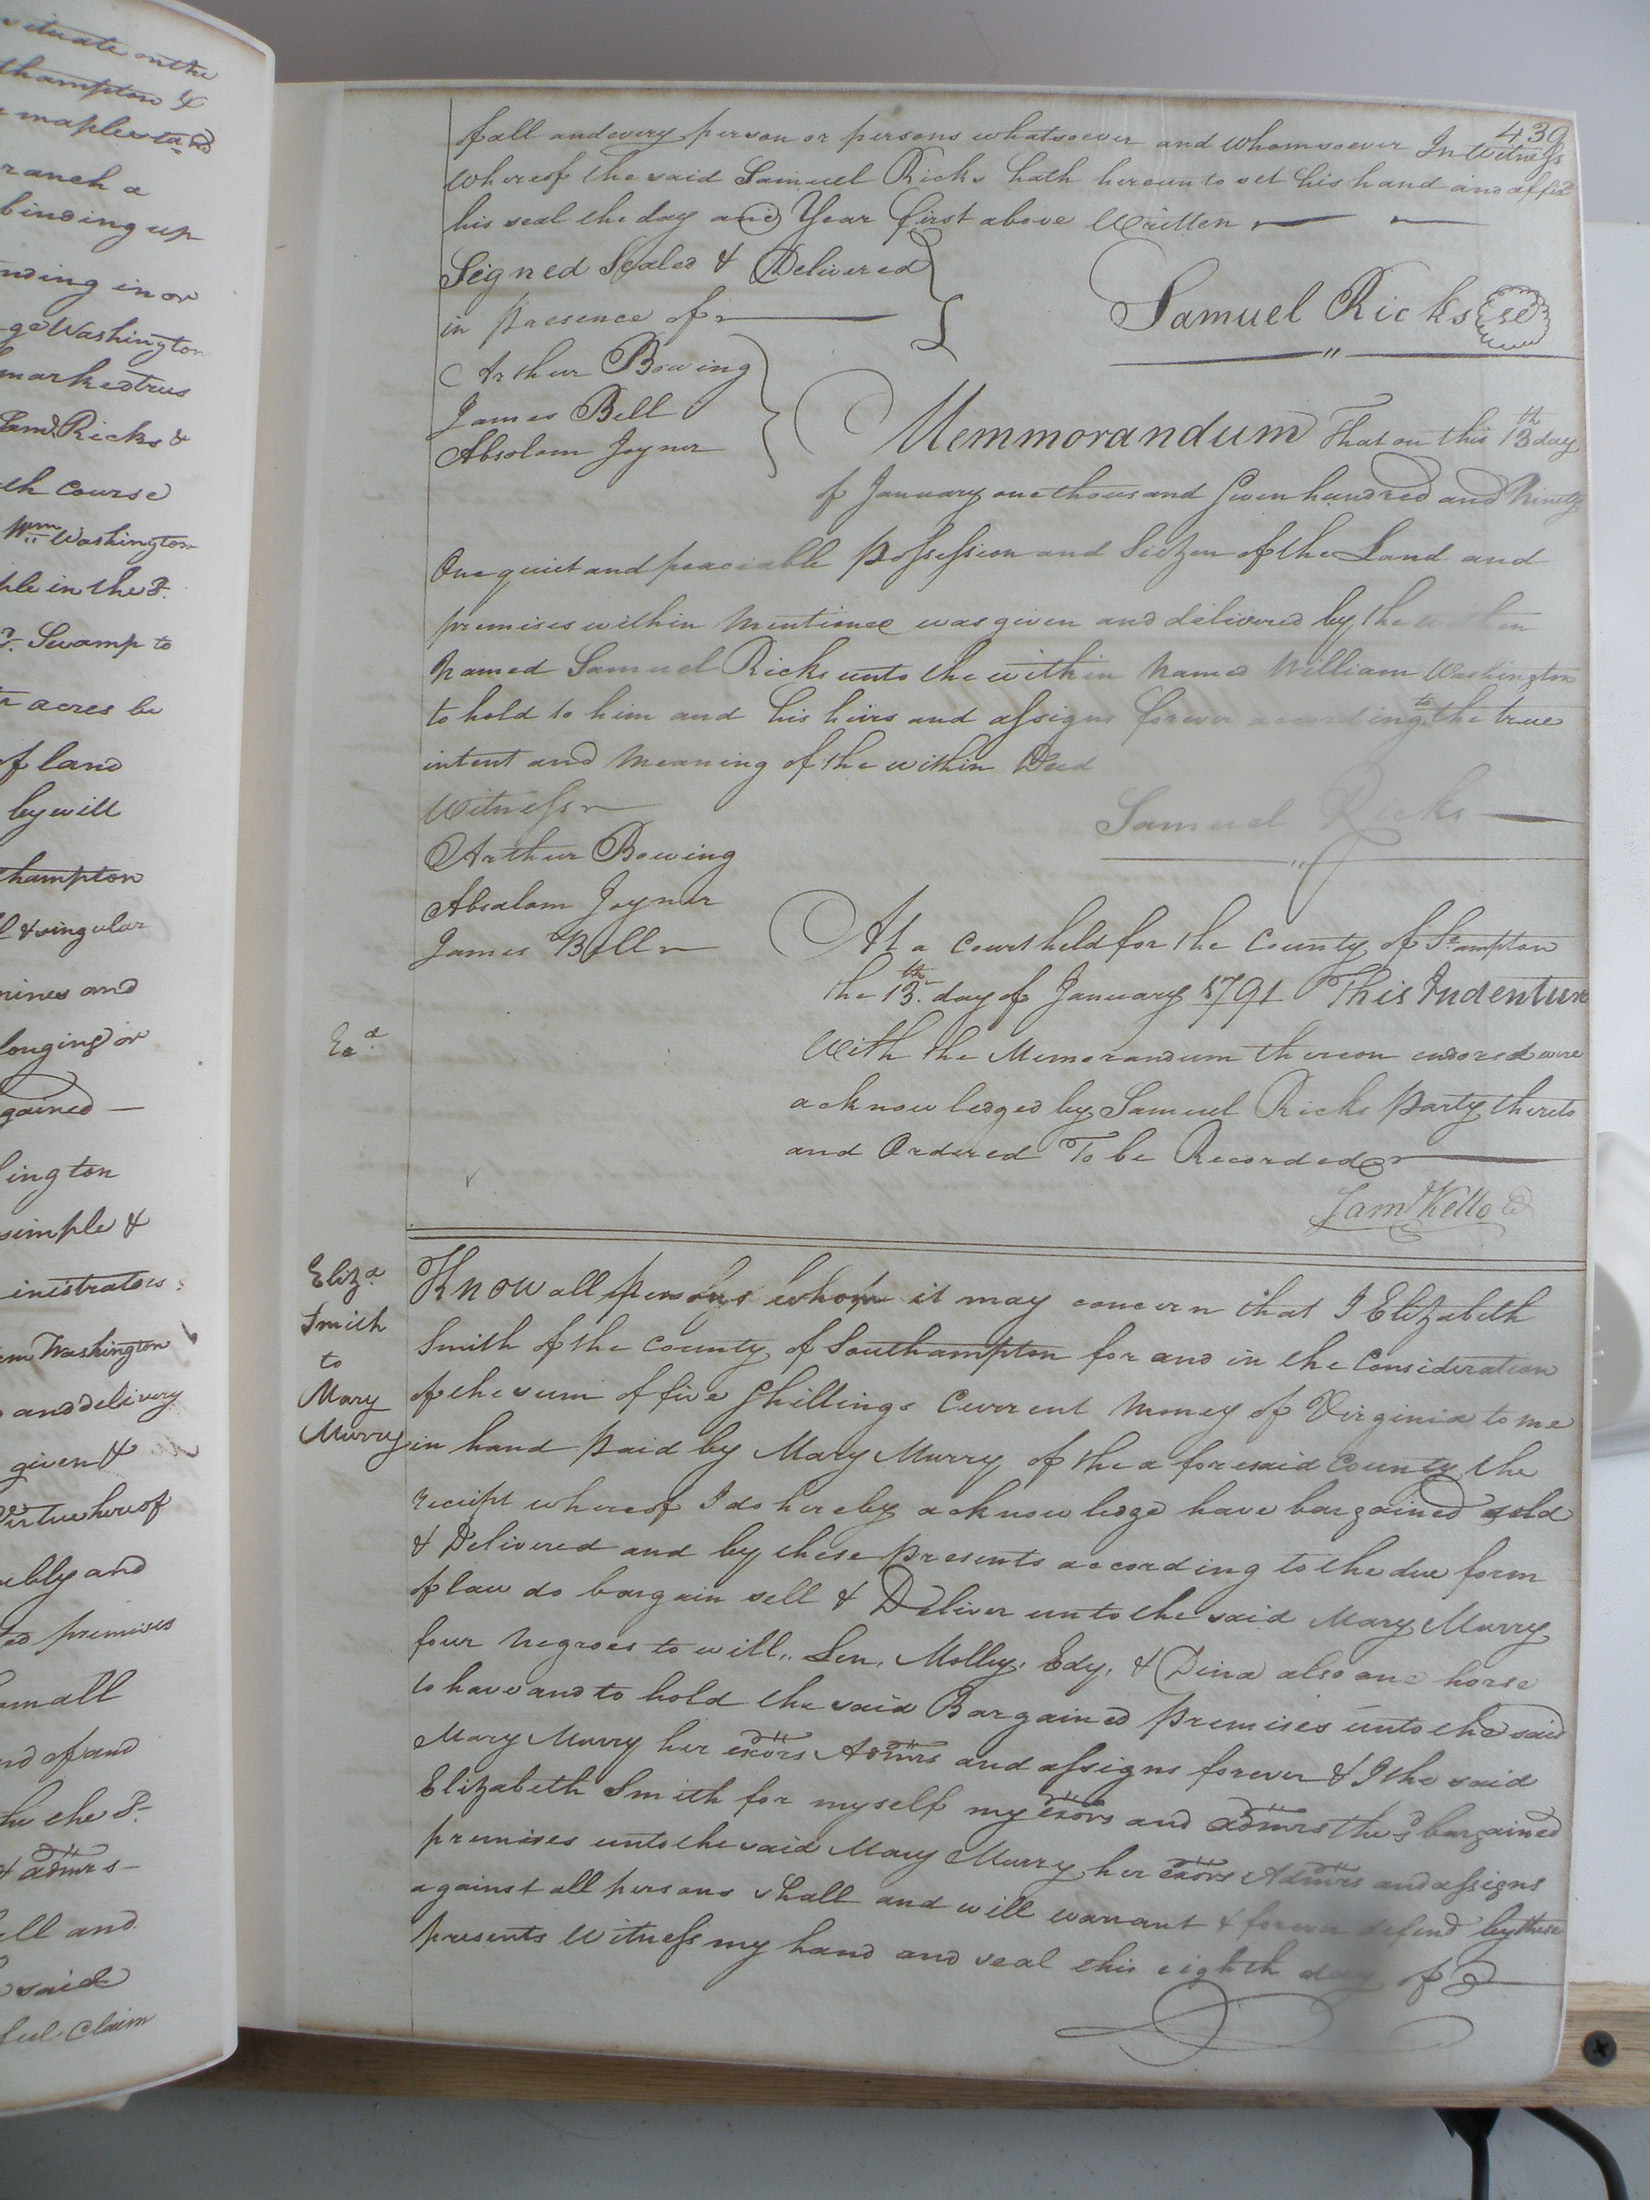 situate on the
thampton &
maple sta nd
ranch a
binding up
nding in or
ge Washington
marked trees
Saml. Ricks &
ch Course
Wm Washington
ple in the s
Swamp to
acres be
of land
by will
hampton
l & singular
mines and
longing or
gained —
ington
simple &
inistrators
am Washington
and delivery
given &
Virtue hereof
ably and
ed premises
small
nd of and
he the sd.
& admrs
ell and
said
ful Claim
439
of all and every person or persons whatsoever and whomsoever In Witness
whereof the said Samuel Ricks hath hereunto set his hand and affixd
his seal the day and Year first above Written
Signed Sealed & Delivered
in presence of
Samuel Ricks Sd
Arthur Bowing
James Bell
Absolom Joyner
Memmorandum That on this 13th day
of January one thousand Seven hundred and Ninety
One quiet and peaciable possession and Siezen of the Land and
premises within Mentioned was given and delivered by the within
Named Samuel Ricks unto the within Named William Washington
to hold to him and his heirs and assigns forever according to the true
intent and Meaning of the within Deed
Witness
Samuel Ricks
Arthur Bowing
Absalom Joyner
James Bell
At a Court held for the County of So.ampton
the 13th. day of January 1791 This Indenture
Exd.
With the Memorandum thereon endorsed were
acknowledged by Samuel Ricks party thereto
and Ordered To be Recorded
Saml Kello
Eliza.
Smith
to
Mary
Murry
Know all persons whom it may concern that I Elizabeth
Smith of the County of Southampton for and in the Consideration
of the sum of five Shillings Current Money of Virginia to me
in hand paid by Mary Murry of the aforesaid County the
receipt whereof I do hereby acknowledge have bargained sold
& Delivered and by these presents according to the due form
of law do bargain sell & Deliver unto the said Mary Murry
four Negroes to will,, Sen, Molley, Edy, & Dina also one horse
to have and to hold the said Bargained premises unto the said
Mary Murry her exors Admrs and assigns forever & I the said
Elizabeth Smith for myself my exors and admrs the sd bargained
premises unto the said Mary Murry her exors Admrs and assigns
against all persons shall and will warrant & forever defend by these
presents Witness my hand and seal this eighth day of